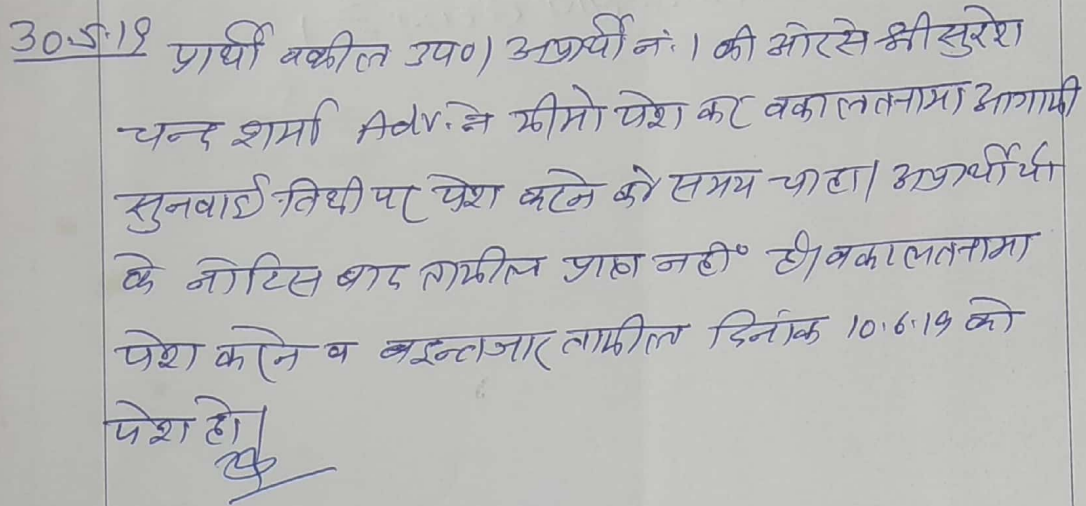 30.5.19 प्रार्थी वकील उप०। अप्रार्थी नं. 1 की ओर से श्री सुरेश
चन्द शर्मा Adv. ने मीमो पेश कर वकालतनामा आगामी
सुनवाई तिथी पर पेश करने को समय चाहा। अप्रार्थी
के नोटिस बाद तामील प्राप्त नहीं है। वकालतनामा
पेश करने व बइन्तजार तामील दिनांक 10.6.19 को
पेश हो।